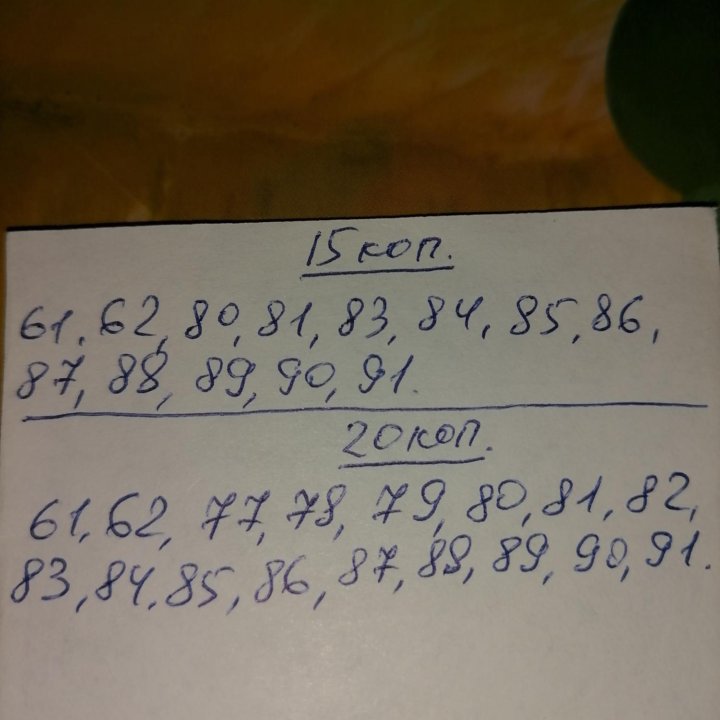 15 коп.
61, 62, 80, 81, 83, 84, 85, 86,
87, 88, 89, 90, 91.
20 коп.
61, 62, 77, 78, 79, 80, 81, 82,
83, 84, 85, 86, 87, 88, 89, 90, 91.